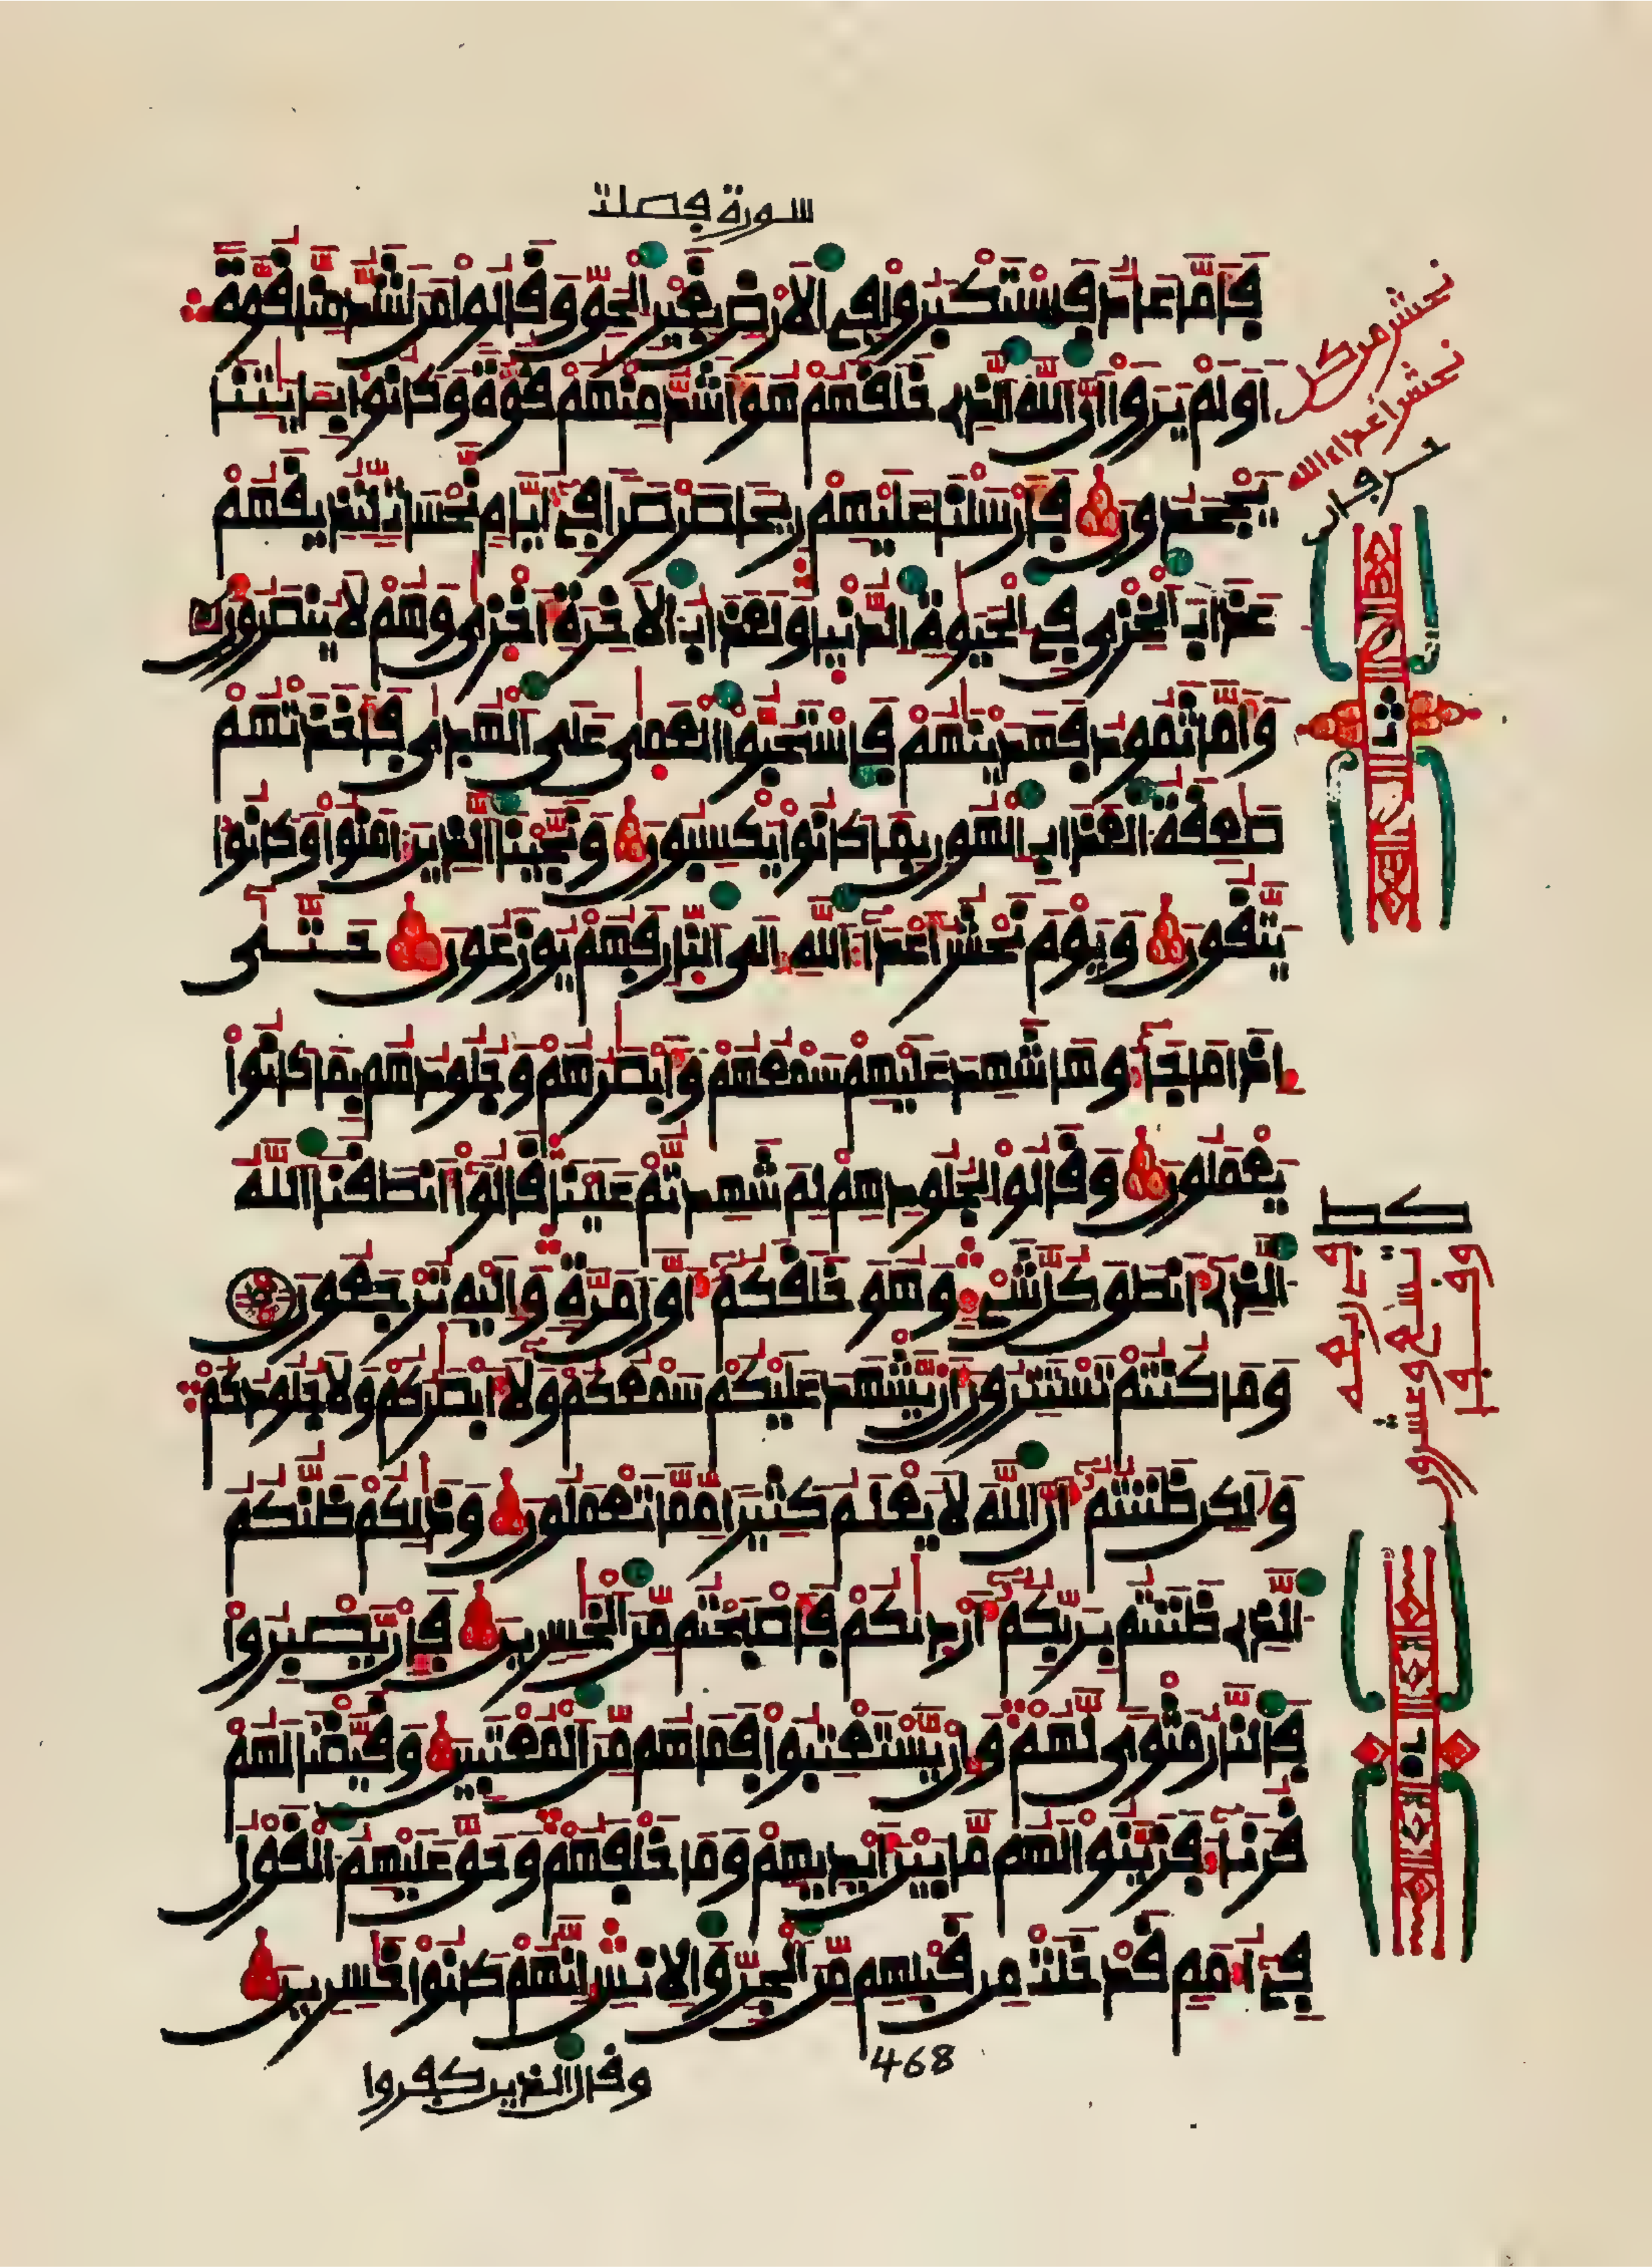 سورة فصلت
فأما عاد فاستكبروا في الأرض بغير الحق وقالوا من أشد منا قوة
أو لم يروا أن الله الذي خلقهم هو أشد منهم قوة وكانوا بـٔايتنا
يجحدون فأرسلنا عليهم ريحا صرصرا في أيام نحسات لنذيقهم
عذاب الخزي في الحيوة الدنيا ولعذاب الأخرة أخزى وهم لا ينصرون
وأما ثمود فهدينهم فاستحبوا العمى على الهدى فأخذتهم
صعقة العذاب الهون بما كانوا يكسبون ونجينا الذين ءامنوا وكانوا
يتقون ويوم نحشر أعداء الله إلى النار فهم يوزعون حتى
إذا ما جاءوها شهد عليهم سمعهم وأبصرهم وجلودهم بما كانوا
يعملون وقالوا لجلودهم لم شهدتم علينا قالوا أنطقنا الله
الذي أنطق كل شيء وهو خلقكم أول مرة وإليه ترجعون
وما كنتم تستترون أن يشهد عليكم سمعكم ولا أبصركم ولا جلودكم
ولكن ظننتم أن الله لا يعلم كثيرا مما تعملون وذلكم ظنكم
الذي ظننتم بربكم أرديكم فأصبحتم من الخسرين فإن يصبروا
فالنار مثوى لهم وإن يستعتبوا فما هم من المعتبين وقيضنا لهم
قرناء فزينوا لهم ما بين أيديهم وما خلفهم وحق عليهم القول
في أمم قد خلت من قبلهم من الجن والإنس إنهم كانوا خسرين
468
وقال الذين كفروا
نحشر من كل
نحشر أعداء الله
حرفان
كط
تسع وعشرون